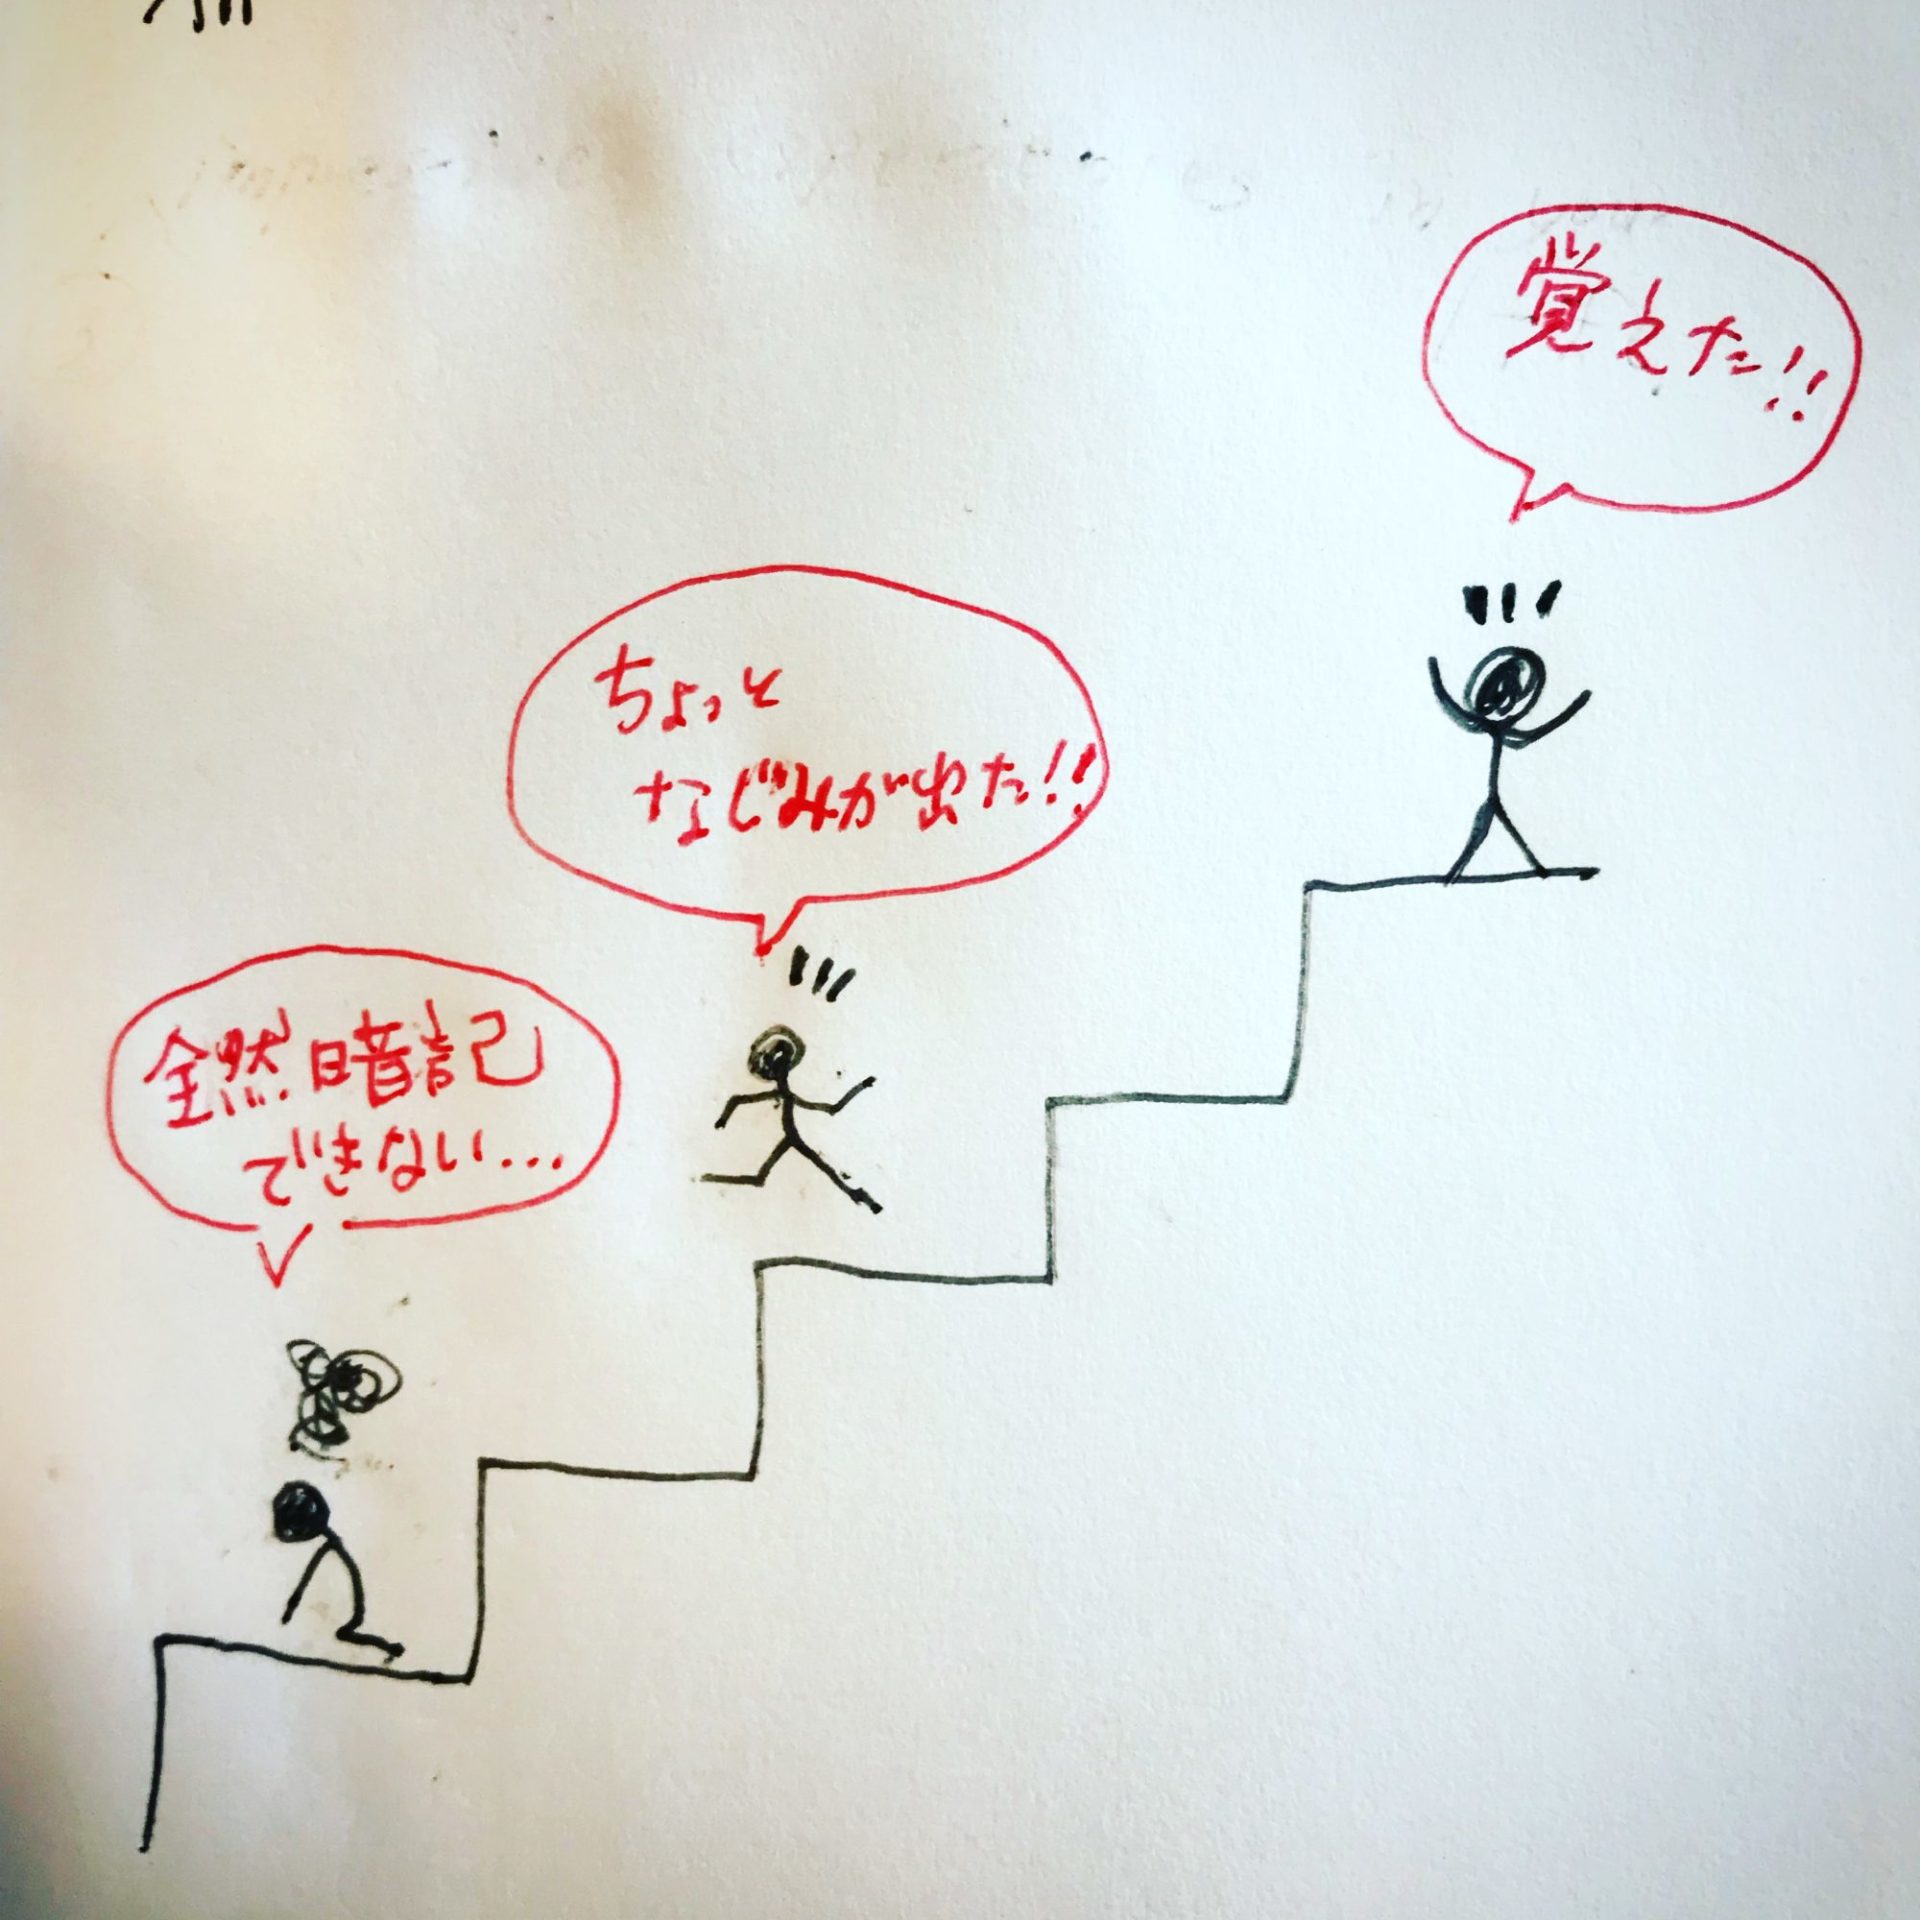 覚えた!!
ちょっと
なじみが出た!!
全然暗記
できない...